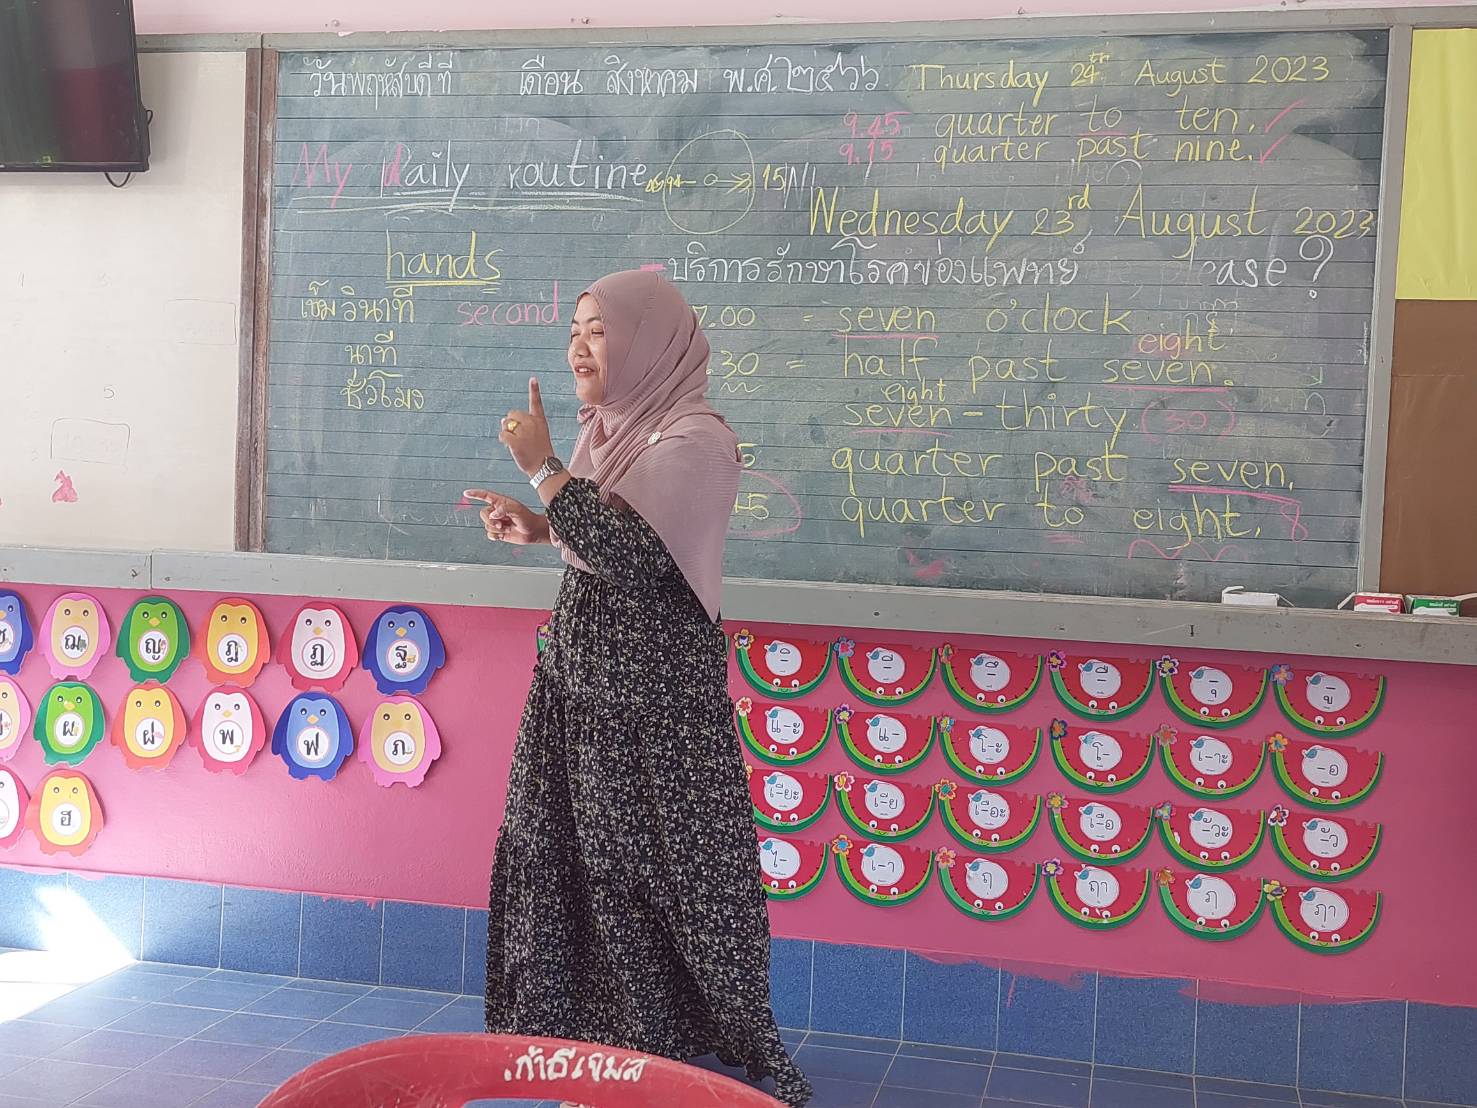 วันพฤหัสบดีที่ เดือน สิงหาคม พ.ศ.๒๕๖๖ Thursday 24th August 2023
9.45 quarter to ten.
9.15 quarter past nine.
My daily routine
15
Wednesday 23rd August 2023
hands
บริการรักษาโรคของแพทย์ ease ?
เข็มวินาที second
7.00 = seven o'clock
นาที
eight
.30 = half past seven.
ชั่วโมง
eight
seven - thirty (30)
5 quarter past seven.
45 quarter to eight. 8
ฌ ญ ฎ ฏ ฐ
ผ ฝ พ ฟ ภ
ฮ
-ิ -ี -ึ -ื -ุ -ู
แ-ะ แ- โ-ะ โ- เ-าะ -อ
เ-ียะ เ-ีย เ-ือะ เ-ือ -ัวะ -ัว
ไ- เ-า ฤ ฤๅ ฦ ฦๅ